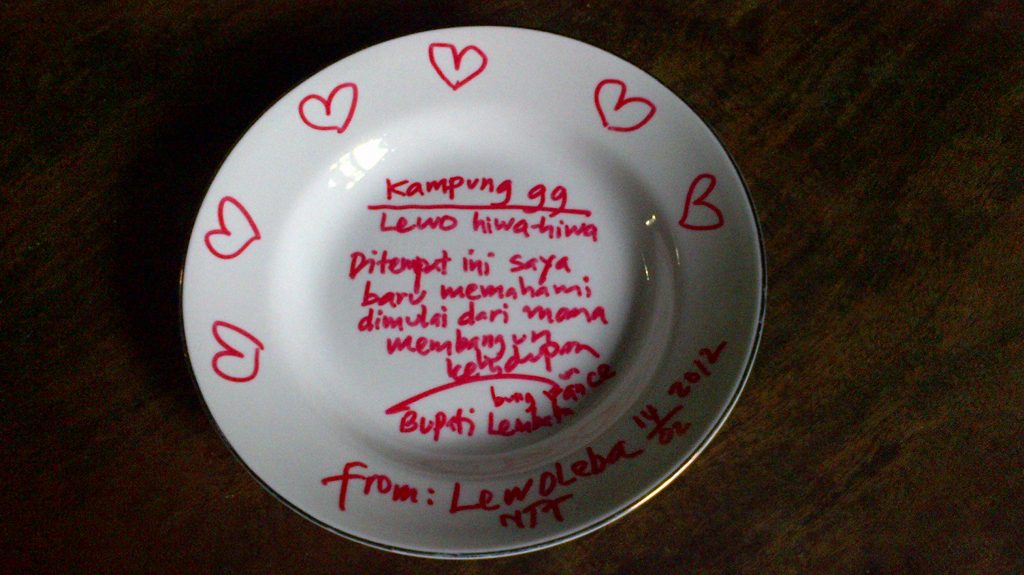 Kampung 99
Lewo hiwa-hiwa
Ditempat ini saya
baru memahami
dimulai dari mana
membangun
kehidupan
bung Yance
Bupati Lembata
from: LewoLeba 14/02 2012
NTT